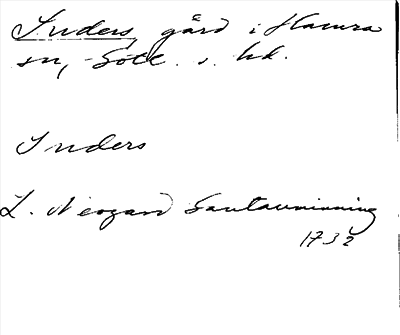 Snders, gård i Hamra
sn, Gotl. s. hd.
Snders
L. Neogard Gautauminning
1732